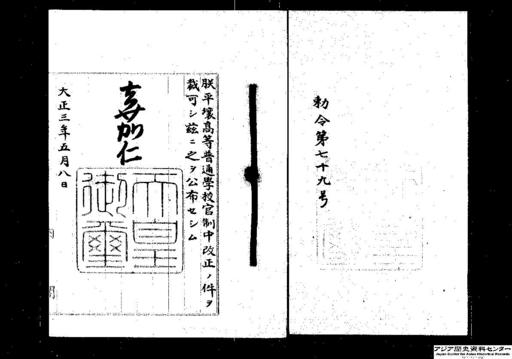 勅令第七十九号
朕平壌高等普通學校官制中改正ノ件ヲ
裁可シ茲ニ之ヲ公布セシム
嘉仁
天皇
御璽
大正三年五月八日
アジア歴史資料センター
Japan Center for Asian Historical Records